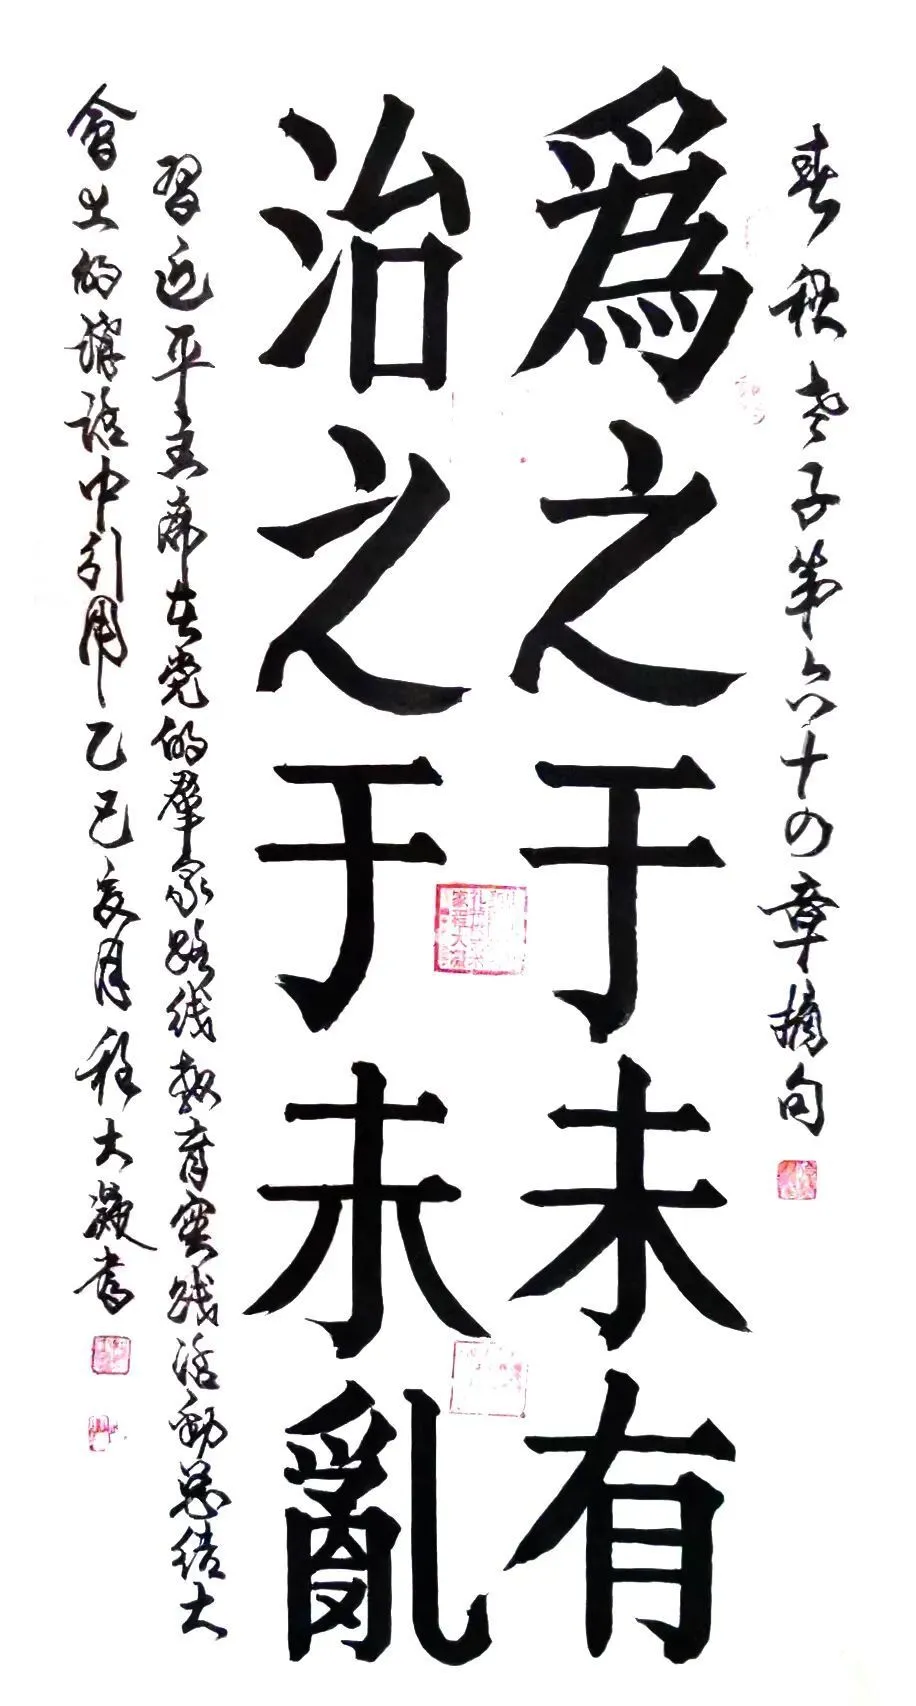 春秋老子第六十四章摘句
爲之于未有
治之于未亂
習近平主席在党的羣众路线教育實践活動总结大
會上的講話中引用乙巳夏月程大書